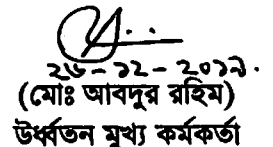 ২৬-১২-২০১৯.
(মোঃ আবদুর রহিম)
উর্ধ্বতন মুখ্য কর্মকর্তা